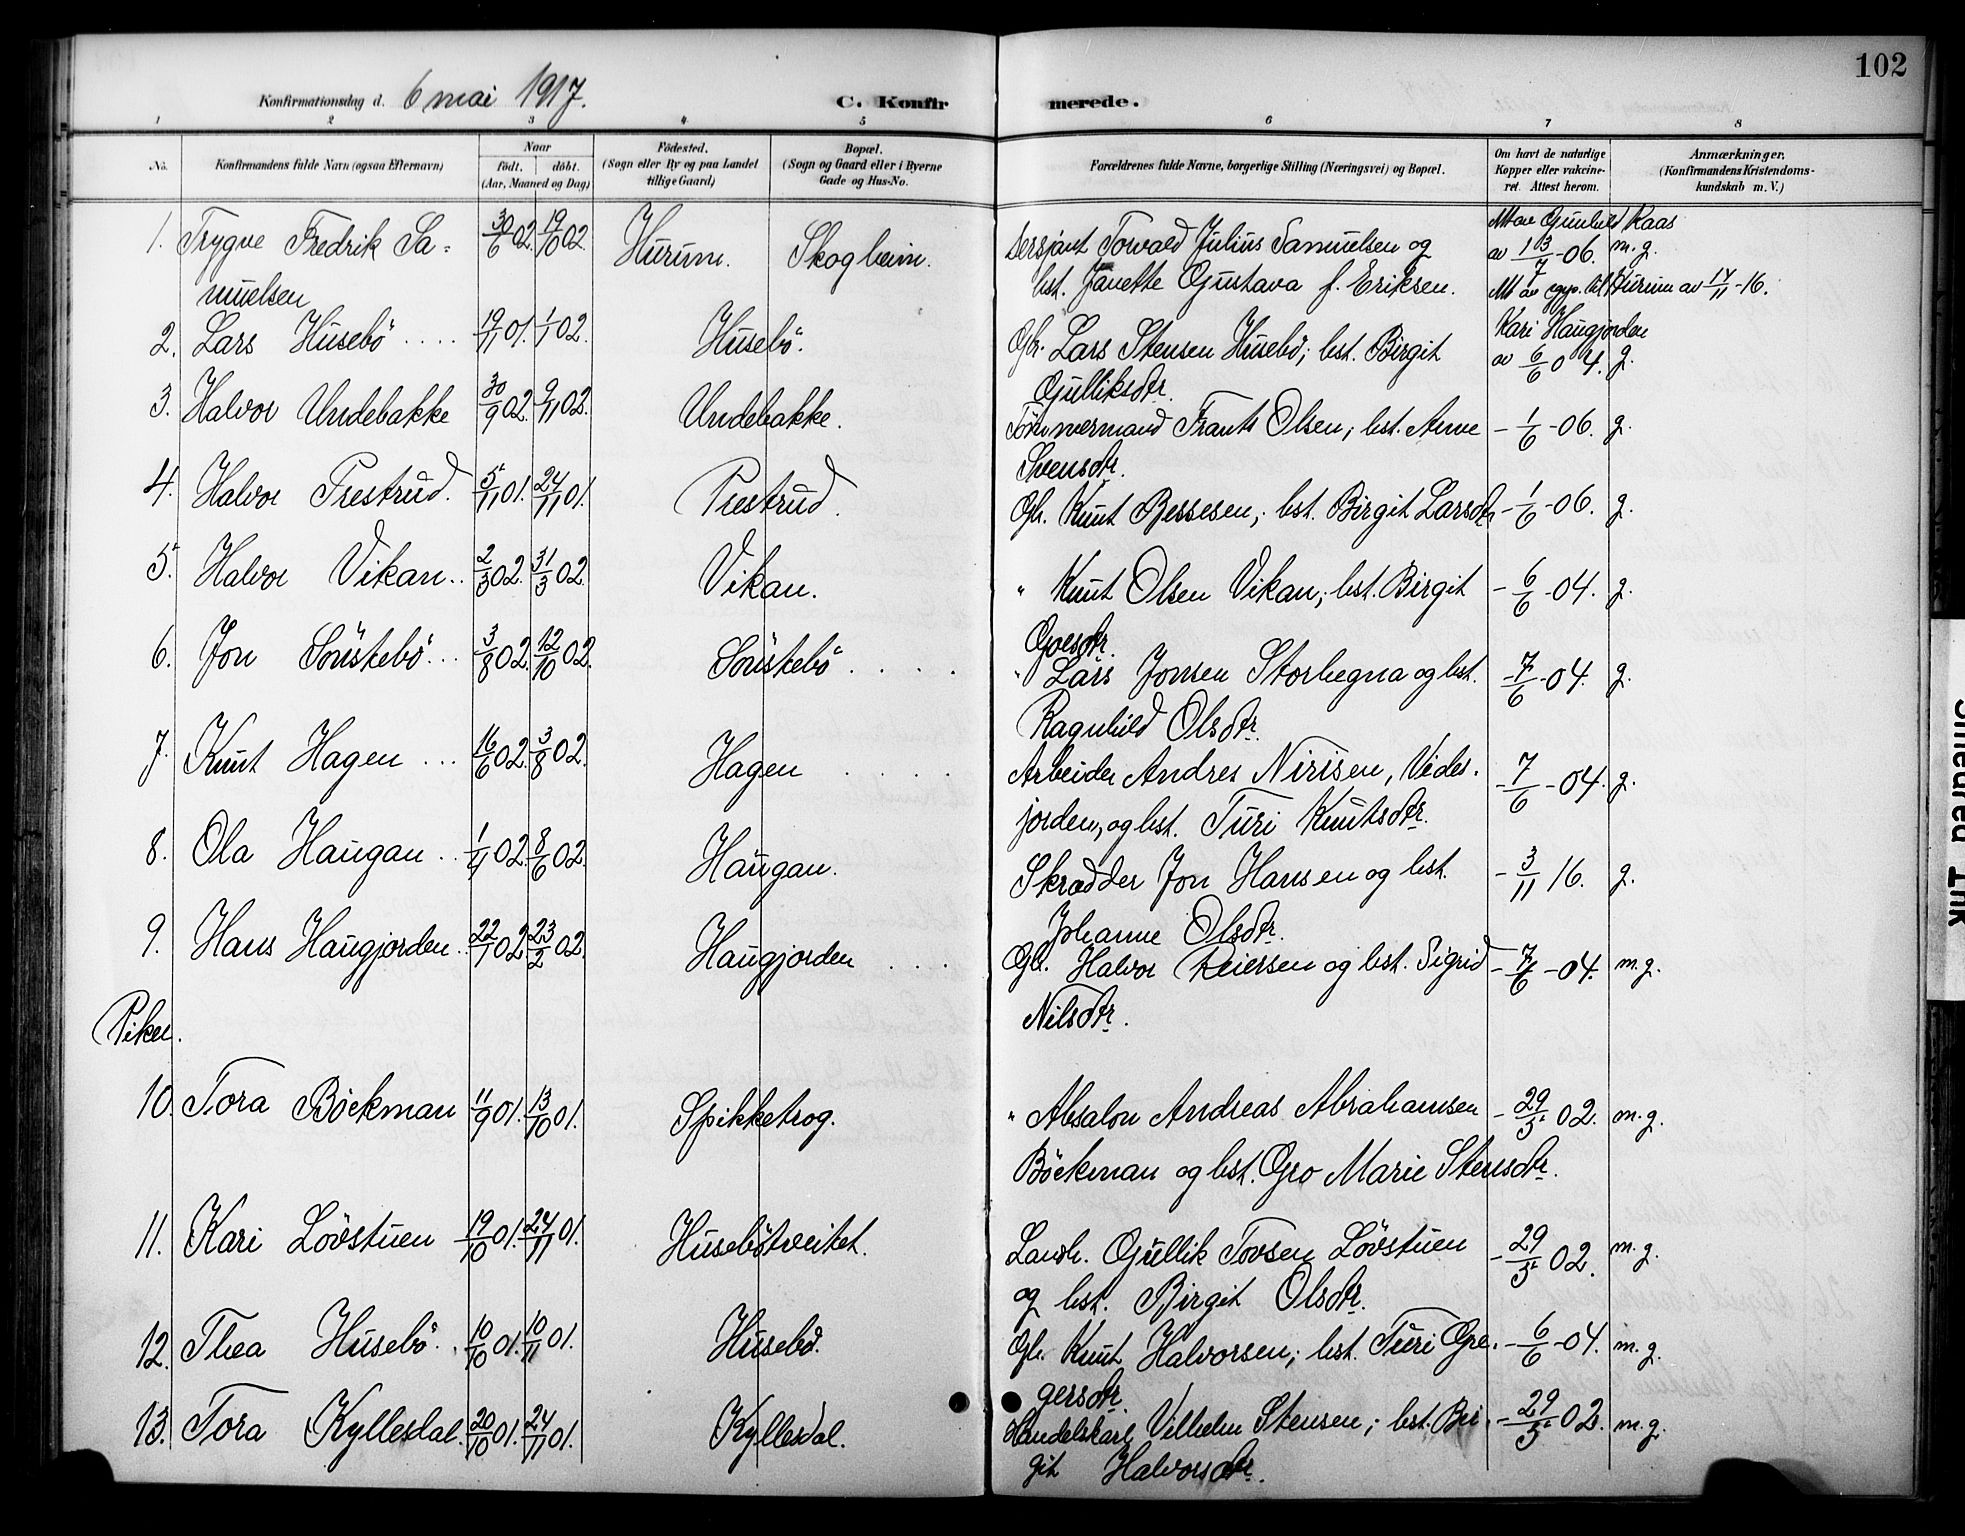 102
Konfirmationsdag d. 6 mai 1917.
C. Konfirmerede.
1 2 3 4 5 6 7 8
No. Konfirmandens fulde Navn (ogsaa Efternavn) Naar født. døbt. (Aar, Maaned og Dag) Födested. (Sogn eller By og paa Landet tillige Gaard) Bopæl. (Sogn og Gaard eller i Byerne Gade og Hus-No. Forældrenes fulde Navne, borgerlige Stilling (Næringsvei) og Bopæl. Om havt de naturlige Kopper eller vakcineret. Attest herom. Anmærkninger. (Konfirmandens Kristendomskundskab m. V.)
1. Trygve Fredrik Sa- 30/6 02. 19/10 02. Hurum. Skogheim. Torvald Julius Samuelsen og Att av Gunhild Kaas
muelsen hst. Janette Gustava f. Eriksen. av 13/7-06. m.g.
Att av til Hurum av 14/11-16.
2. Lars Husebö .... 19/11 01. 1/1 02. Husebö. Gbr. Lars Stensen Husebö; hst. Birgit Kari Haugjorden
Gulliksdtr. av 6/6 04. g.
3. Halvor Undebakke 30/9 02. 9/11 02. Undebakke. Tömmermand Frants Olsen; hst. Anne - 1/6-06. g.
Svensdtr.
4. Halvor Prestrud. 5/11 01. 24/11 01. Prestrud. Gb. Knut Bessesen; hst. Birgit Larsdtr - 1/6-06. g.
5. Halvor Vikan.. 2/3 02. 31/3 02. Vikan. " Knut Olsen Vikan; hst. Birgit - 6/6-04. g.
Goesdtr.
6. Jon Sönstebö... 3/8 02. 12/10 02. Sönstebö.... " Lars Jonsen Storhegna og hst. - 7/6-04. g.
Ragnhild Olsdtr.
7. Knut Hagen ... 16/6 02. 3/8 02. Hagen .... Arbeider Andres Nirisen, Vides-
jorden, og hst. Turi Knutsdtr. - 7/6-04. g.
8. Ola Haugan.. 1/4 02. 8/6 02. Haugan. Skrædder Jon Hansen og hst. - 3/11 16. g.
Johanne Olsdtr.
9. Hans Haugjorden.. 22/1 02. 23/2 02. Haugjorden ... Gb. Halvor Reiersen og hst. Sigrid - 7/6-04. m.g.
Nilsdtr.
Piker.
10. Tora Böckman 11/9 01. 13/10 01. Spikketrog. " Absalon Andreas Abrahamsen - 29/5 02. m.g.
Böckman og hst. Gro Marie Stensdtr.
11. Kari Lövstuen 19/10 01. 24/11 01. Husebötveitet. Landh. Gullik Tovsen Lövstuen - 29/5 02. m.g.
og hst. Birgit Olsdtr.
12. Thea Husebö.. 10/10 01. 10/11 01. Husebö. Gb. Knut Halvorsen; hst. Turi Gre- - 6/6-04. m.g.
gersdtr.
13. Tora Kyllesdal. 20/10 01. 24/11 01. Kyllesdal. Handelskarl Vilhelm Stensen; hst. Bir- - 29/5 02. m.g.
git Halvorsdtr.
Smeared Ink